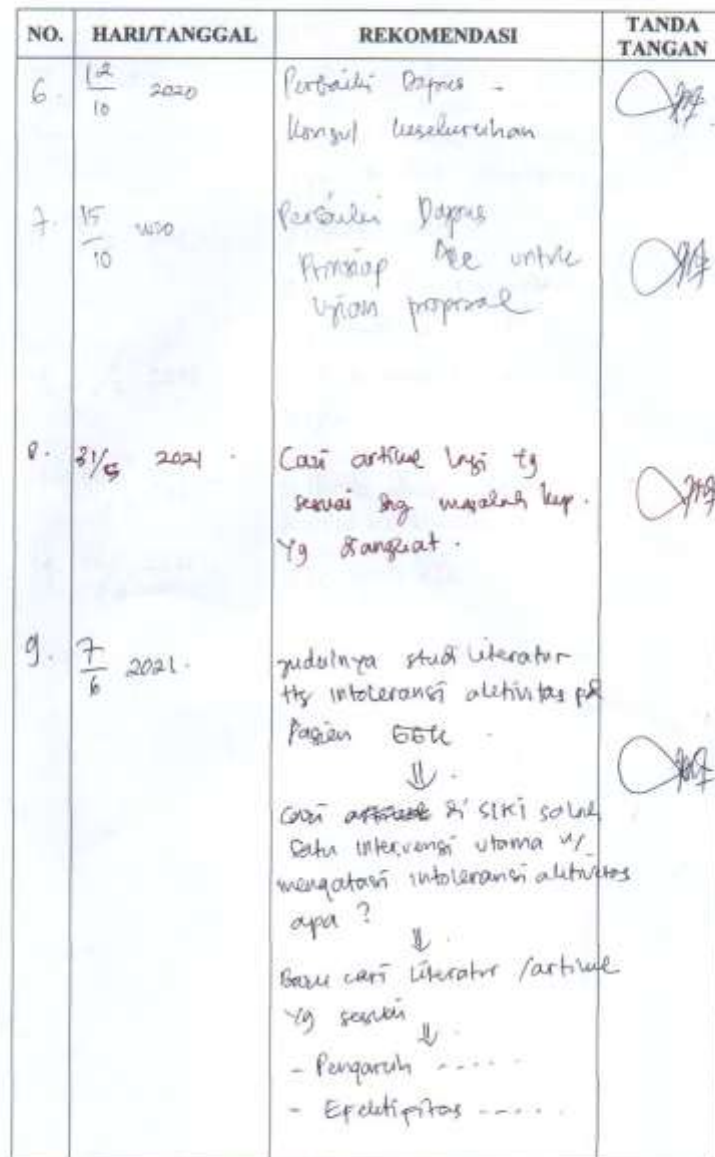 NO. HARI/TANGGAL REKOMENDASI TANDA TANGAN
6. 12/10 2020 Perbaiki Dapus -
Konsul keseluruhan
7. 15/10 2020 Perbaiki Dapus
Prinsip Acc untuk
Ujian proposal
8. 31/5 2021. Cari artikel lagi yg
sesuai dng masalah kep.
yg diangkat.
9. 7/6 2021. judulnya studi literatur
ttg intoleransi aktivitas pd
Pasien GGK.
⇓.
Cari artikel di SIKI salah
satu intervensi utama u/
mengatasi intoleransi aktivitas
apa ?
⇓.
Baru cari literatur /artikel
yg sesuai
⇓
- Pengaruh -----
- Efektipitas -----